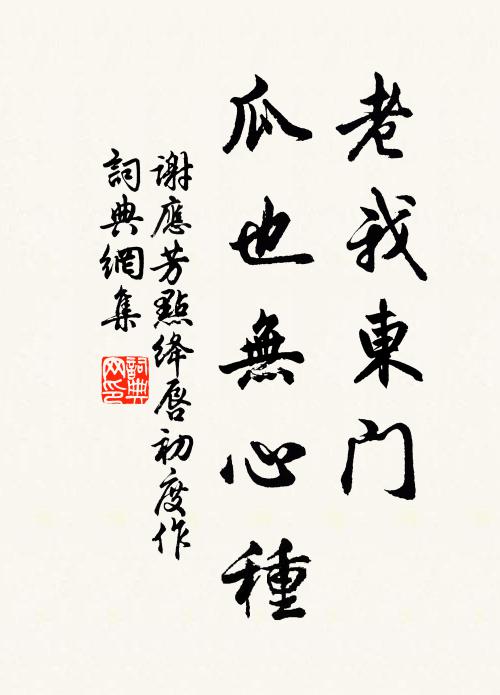 老我東門
瓜也無心種
謝應芳點绛唇初度作
詞典網集
詞典
网印